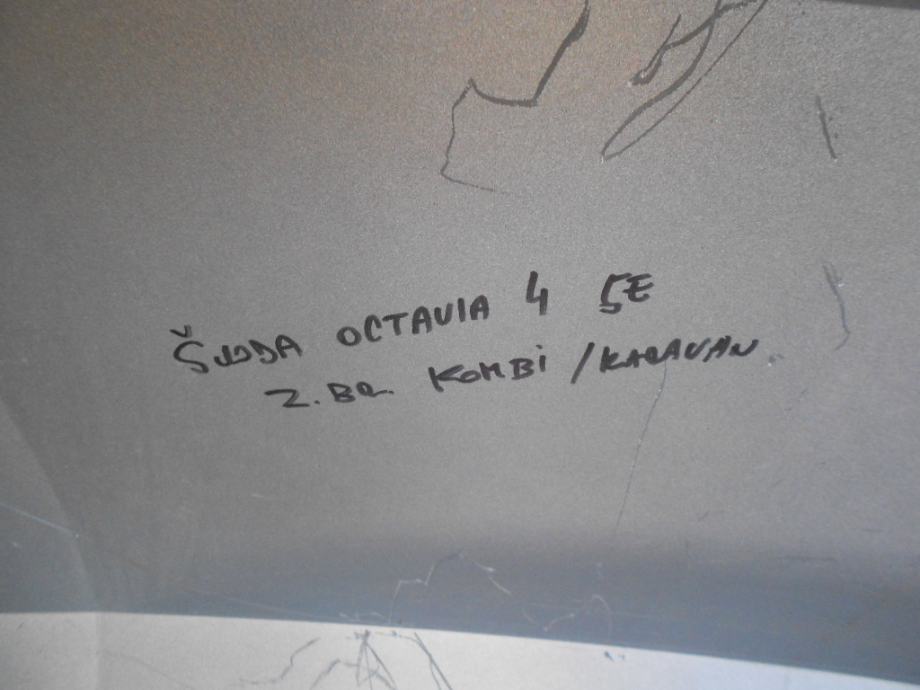 ŠKODA OCTAVIA 4 5E
Z.BR. KOMBi /KARAVAN